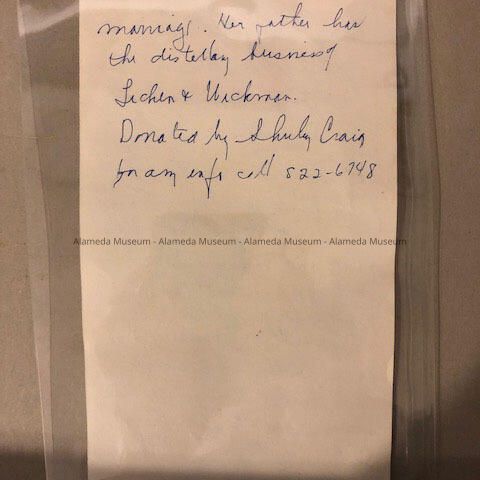 marriage. Her father has
the distellay business of
Lichen & Wickman.
Donated by Shirley Craig
for any info call 522-6748
Alameda Museum - Alameda Museum - Alameda Museum - Alameda Museum